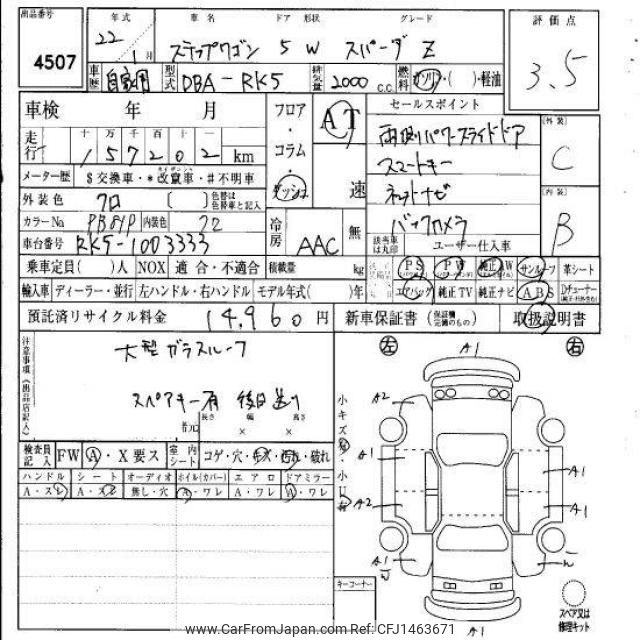 出品番号 年式 車名 ドア 形状 グレード 評価点
4507 22 1月 ステップワゴン 5W スパーダ Z 3.5
車歴 自家用 型式 DBA-RK5 排気量 2000 c.c. 燃料 ガソリン・( )・軽油
車検 年 月 フロア・コラム・ダッシュ AT 速 セールスポイント
走行 十万千百十一 157202 km 両側パワースライドドア 外装 C
メーター歴 $交換車・*改竄車・#不明車 スマートキー
外装色 クロ [ ] 色替は色替車と記入 ネットナビ 内装 B
カラーNo PB81P 内装色 冷房 AAC 無 バックカメラ
車台番号 RK5-1003333 該当車は丸印 ユーザー仕入車
乗車定員( )人 NOX 適合・不適合 積載量 kg PS PW 純正AW サンルーフ 革シート
輸入車 ディーラー・並行 左ハンドル・右ハンドル モデル年式( )年 エアバッグ 純正TV 純正ナビ ABS Dチューナー
預託済リサイクル料金 14,960円 新車保証書(保証欄完備のもの) 取扱説明書
注意事項(出品店記入) 大型ガラスルーフ
スペアキー有 後日送り
長さ 幅 高さ
× ×
左 A1 右
小キズ 小凹
A2
A1 A1
A2 A1
A1
A1
検査員記入 FW A・X要ス 室内シート コゲ・穴・キズ・汚れ・破れ
ハンドル シート オーディオ ホイル(カバー) エアロ ドアミラー
A・スレ A・スレ 無し・穴 A・ワレ A・ワレ A・ワレ
キーコーナー
スペア又は修理キット
www.CarFromJapan.com Ref: CFJ1463671